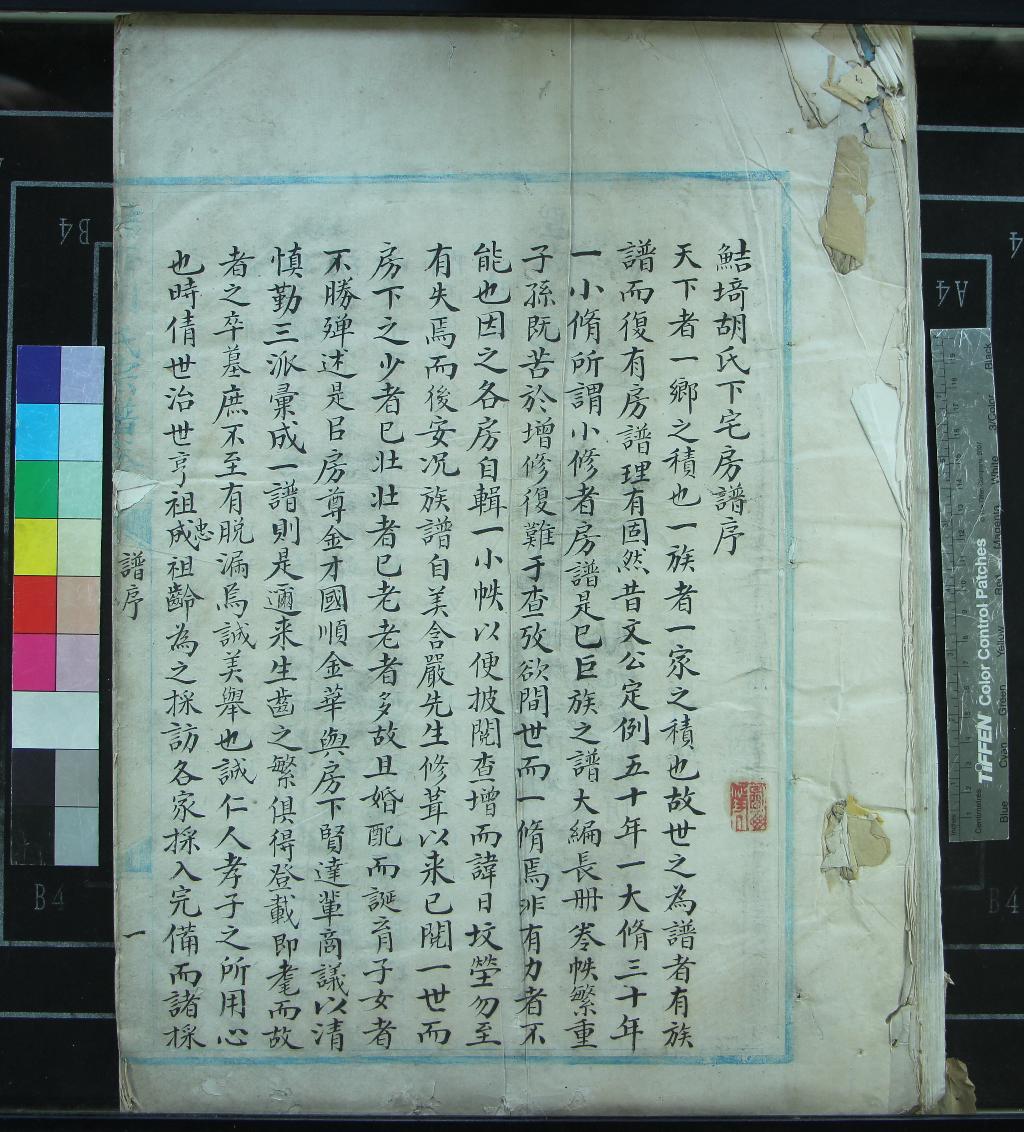 鮚埼胡氏下宅房譜序
天下者一鄉之積也一族者一家之積也故世之為譜者有族
譜而復有房譜理有固然昔文公定例五十年一大脩三十年
一小脩所謂小修者房譜是已巨族之譜大編長册帙繁重
子孫既苦於增修復難于查攷欲間世而一脩焉非有力者不
能也因之各房自輯一小帙以便披閱查增而諱日坟塋勿至
有失焉而後安况族譜自美含嚴先生修葺以来已閱一世而
房下之少者已壯壯者已老老者多故且婚配而誕育子女者
不勝殫述是㠯房尊金才國順金華與房下賢達輩商議以清
慎勤三派彙成一譜則是邇来生齒之繁俱得登載即耄而故
者之卒墓庶不至有脱漏焉誠美舉也誠仁人孝子之所用心
也時倩世治世亨祖成忠祖齡為之採訪各家採入完備而諸採
譜序
一
B4
A4
4
B4
B4
TIFFEN Color Control Patches
Inches
Centimetres
Blue
Cyan
Green
Yellow
Red
Magenta
White
3/Color
Black